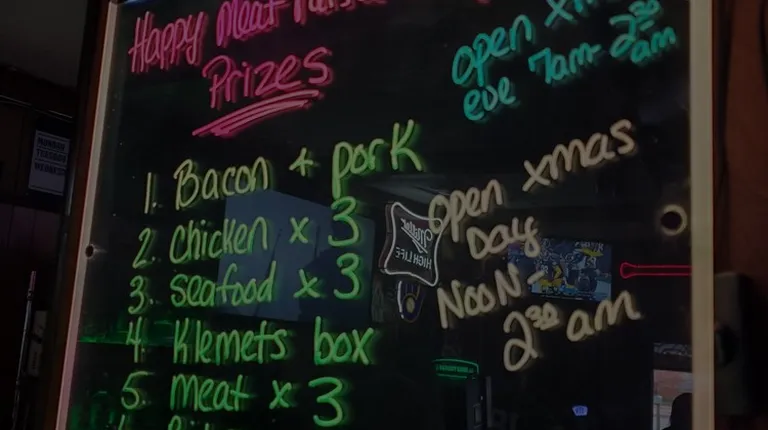 Happy Meat
Prizes
1. Bacon + pork
2. chicken x 3
3. seafood x 3
4. Klemets box
5. meat x 3
open xm
eve 7am - 2³⁰
am
Open xmas
Day
NOON -
2³⁰ am
Miller
HIGH LIFE